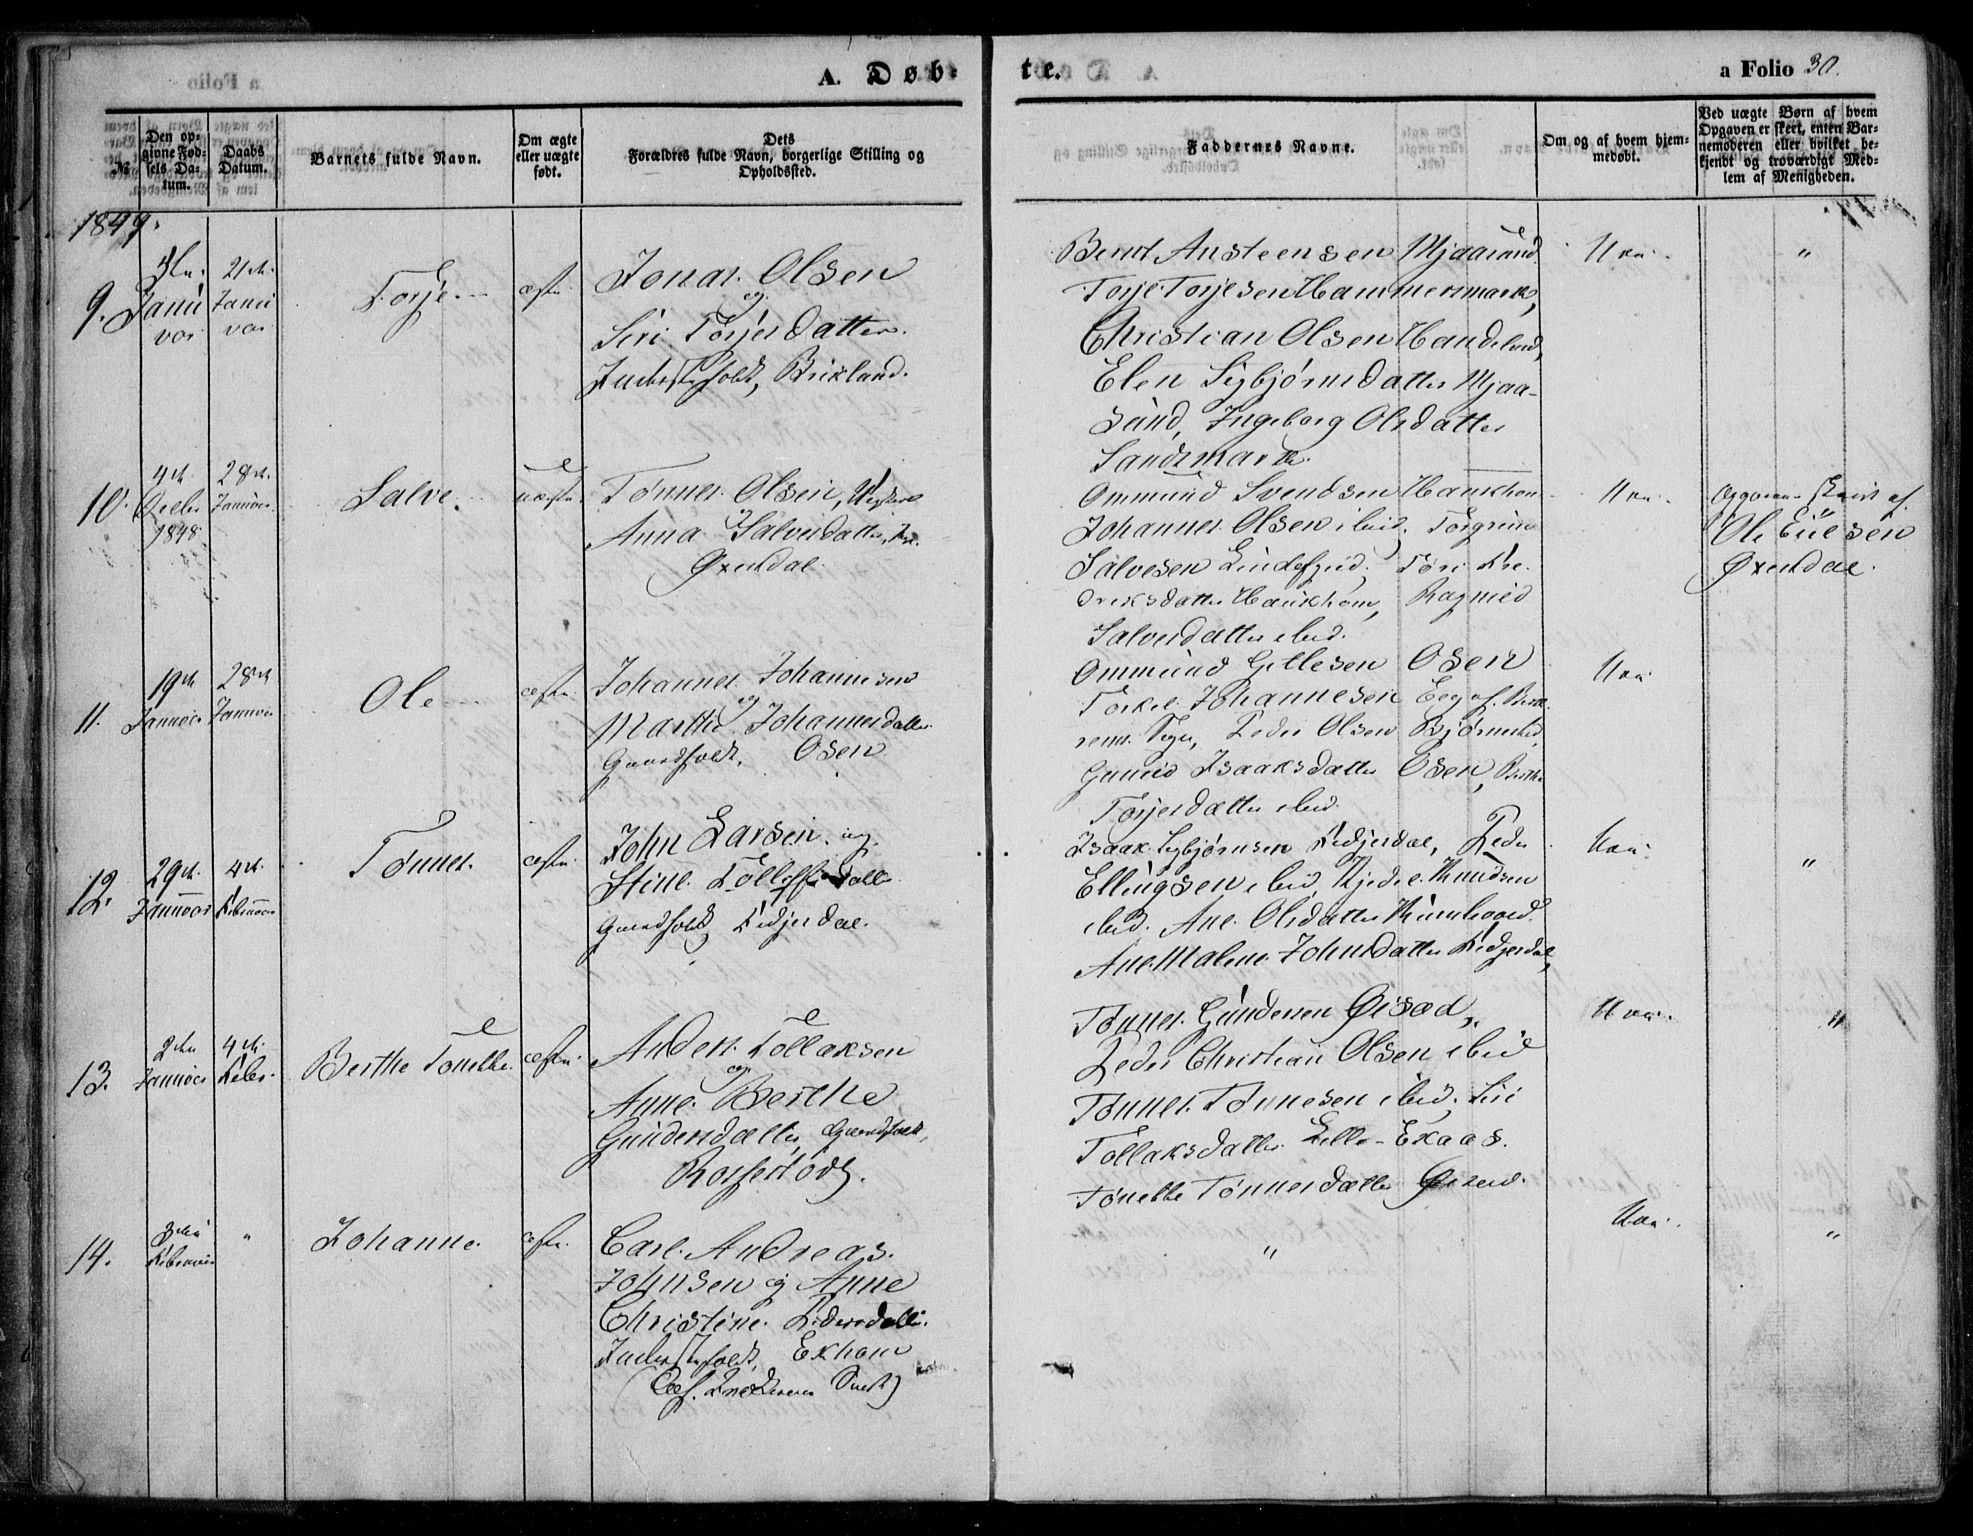 A. Døb-
te.
a Folio 30.
No
Den op-
givne Fød-
sels Da-
tum.
Daabs
Datum.
Barnets fulde Navn.
Om ægte
eller uægte
født.
Dets
Forældres fulde Navn, borgerlige Stilling og
Opholdssted.
Faddernes Navne.
Om og af hvem hjem-
medøbt.
Ved uægte Børn af hvem
Opgaven er skert, enten Bar-
nemoderen eller hvilket be-
kjendt og troværdigt Med-
lem af Menigheden.
1849.
9.
Janu
var
21de
Janu
var
Torje
ægte
Jonas Olsen
og
Siri Torjesdatter
Inderstfolk, Birkland.
Bernt Ansteensen Mjaasund
Torje Torjesen Hammersmark,
Christian Olsen Handeland,
Elen Sigbjørnsdatter Mjaa-
sund, Ingeborg Olsdatter
Sandsmark.
Nei
"
10.
4de
1848
28de
Januar
Salve
uægte
Tønnes Olsen,
Anna Salvesdatter,
Øxendal
Ommund Svendsen Haukhom
Johannes Olsen ibid. Torgrim
Salvesen Tøri Fre-
driksdatter Haukhom, Ragnild
Salvesdatter ibid.
Nei
Opgaven skeet af
Ole
Øxendal.
11.
19de
Januar
28de
Januar
Ole
ægte
Johannes Johannesen
og
Marthe Johannesdatter
Gaardfolk, Osen
Ommund Osen
Torkel Johannesen Eeg af
Sogn, Peder Olsen Bjørnestad,
Gunild Isaaksdatter Osen, Berthe
Torjesdatter ibid.
Nei
12.
29de
Januar
4de
Februar
Tønnes
ægte
John Larsen og
Stine Tollefsdatter
Gaardfolk Fidjerdal.
Isaak Sigbjørnsen Fidjerdal, Peder
Ellingsen ibid, Kjedel Knudsen
ibid. Ane Olsdatter
Ane Malene Johnsdatter Fidjerdal,
Nei
"
13.
2den
Januar
4de
Febr.
Berthe Tonette
ægte
Anders Tollaksen
og
Anne Berthe
Gundersdatter, Gaardfolk,
Tønnes Gundersen Øisæd,
Peder Christian Olsen ibid
Tønnes Tønnesen ibid, Siri
Tollaksdatter Lille-Exaas.
Tonette Tønnesdatter
Nei
"
14.
3die
Februar
"
Johanne
ægte
Carl Andreas
Johnsen og Anne
Christine Pedersdatter
Inderstfolk, Exhom
"
Nei
"